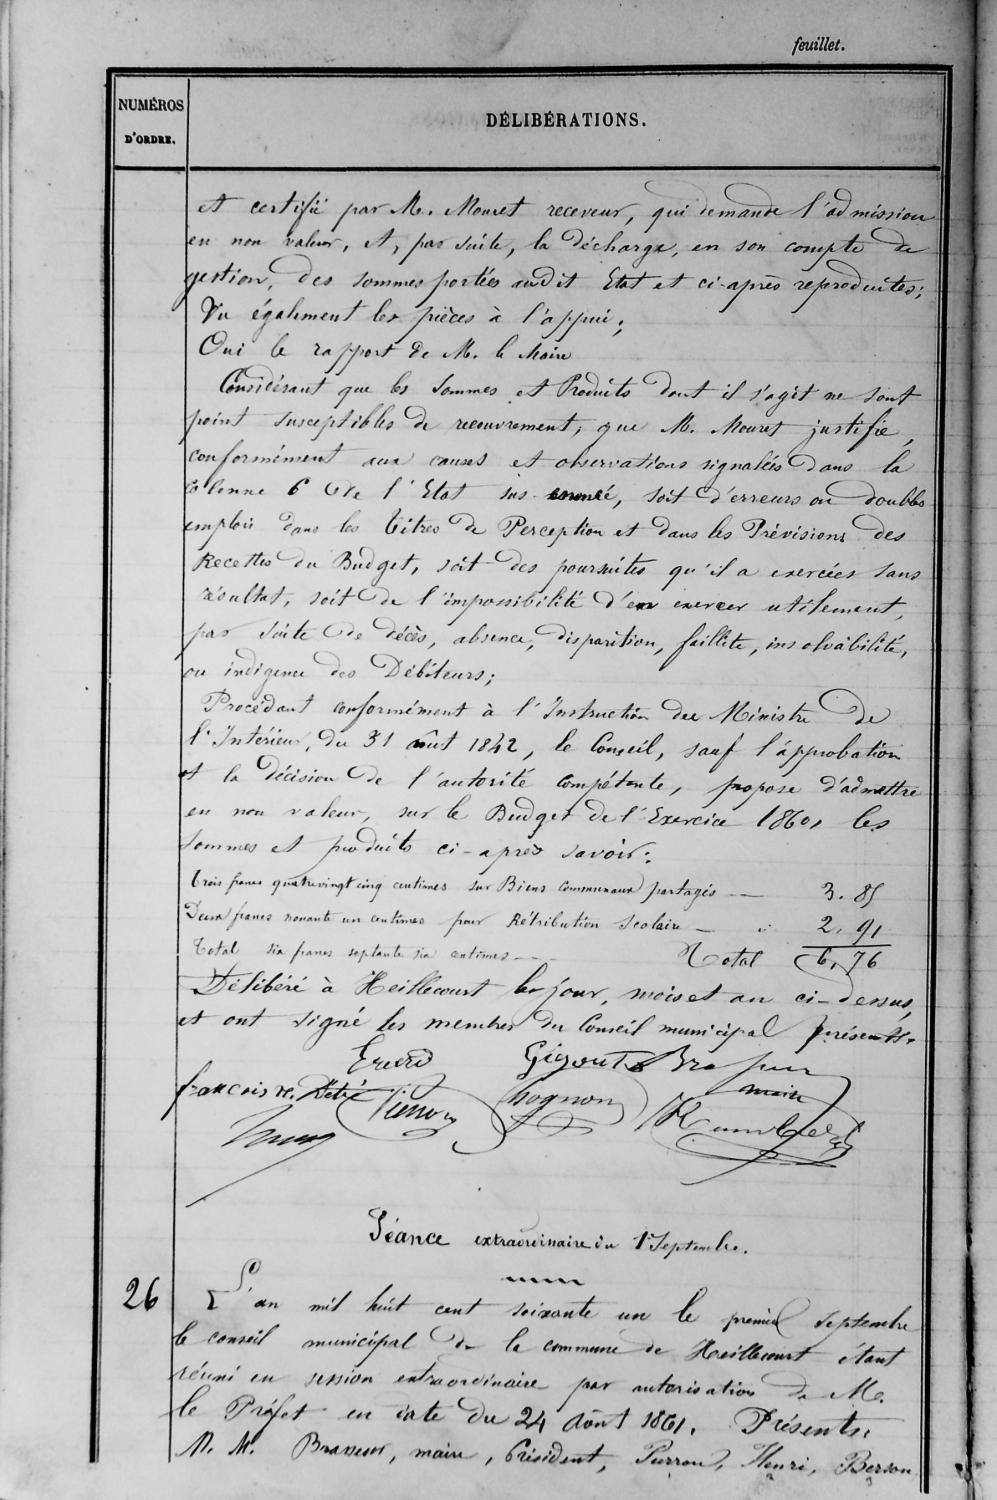 feuillet.
NUMÉROS
D'ORDRE.
DÉLIBÉRATIONS.
et certifié par M. Mouret receveur, qui demande l'admission
en non valeur, et, par suite, la décharge, en son compte de
gestion, des sommes portées audit Etat et ci-après reproduites;
Vu également les pièces à l'appui;
Oui le rapport de M. le Maire
Considérant que les Sommes et Produits dont il s'agit ne sont
point susceptibles de recouvrement; que M. Mouret justifie,
conformément aux causes et observations signalées dans la
Colonne 6 de l'Etat sus-énoncé, soit d'erreurs ou doubles
emplois dans les Titres de Perception et dans les Prévisions des
Recettes du Budget, soit des poursuites qu'il a exercées sans
résultat, soit de l'impossibilité d'en exercer utilement,
par suite de décès, absence, disparition, faillite, insolvabilité,
ou indigence des Débiteurs;
Procédant conformément à l'Instruction du Ministre de
l'Intérieur, du 31 août 1842, le Conseil, sauf l'approbation
et la décision de l'autorité compétente, propose d'admettre
en non valeur, sur le Budget de l'Exercice 1860, les
sommes et produits ci-après savoir:
Trois francs quatrevingt cinq centimes sur Biens Communaux partagés — 3. 85
Deux francs nonante un centimes pour Rétribution Scolaire — " 2, 91
Total six francs septante six centimes — Total 6, 76
Délibéré à Heillecourt les jour, mois et an ci-dessus,
et ont signé les membres du Conseil municipal présents.
Gigout
françois
maire
Hognon
Séance extraordinaire du 1er Septembre.
26
L'an mil huit cent soixante un le premier septembre
le conseil municipal de la commune de Heillecourt étant
réuni en session extraordinaire par autorisation de M.
le Préfet en date du 24 août 1861. Présents,
M. M. Brasseur, maire, Président, Pierron, Henri, Berson